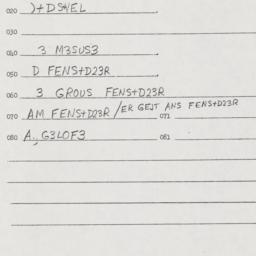 020 )+DS+/EL
030
040 3 M3SUS3
050 D FENS+D23R
060 3 GROUS FENS+D23R
070 AM FENS+D23R / ER GEJT ANS FENS+D23R 071
080 A., G3LOF3 081